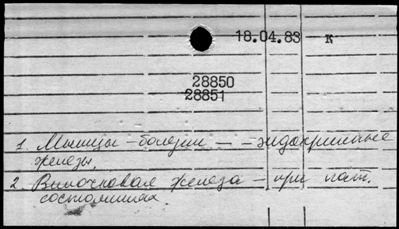 18.04.83 К
28850
28851
1. Мышцы – болезни – – эндокринные
железы.
2. Вилочковая железа – при пат.
состояниях.